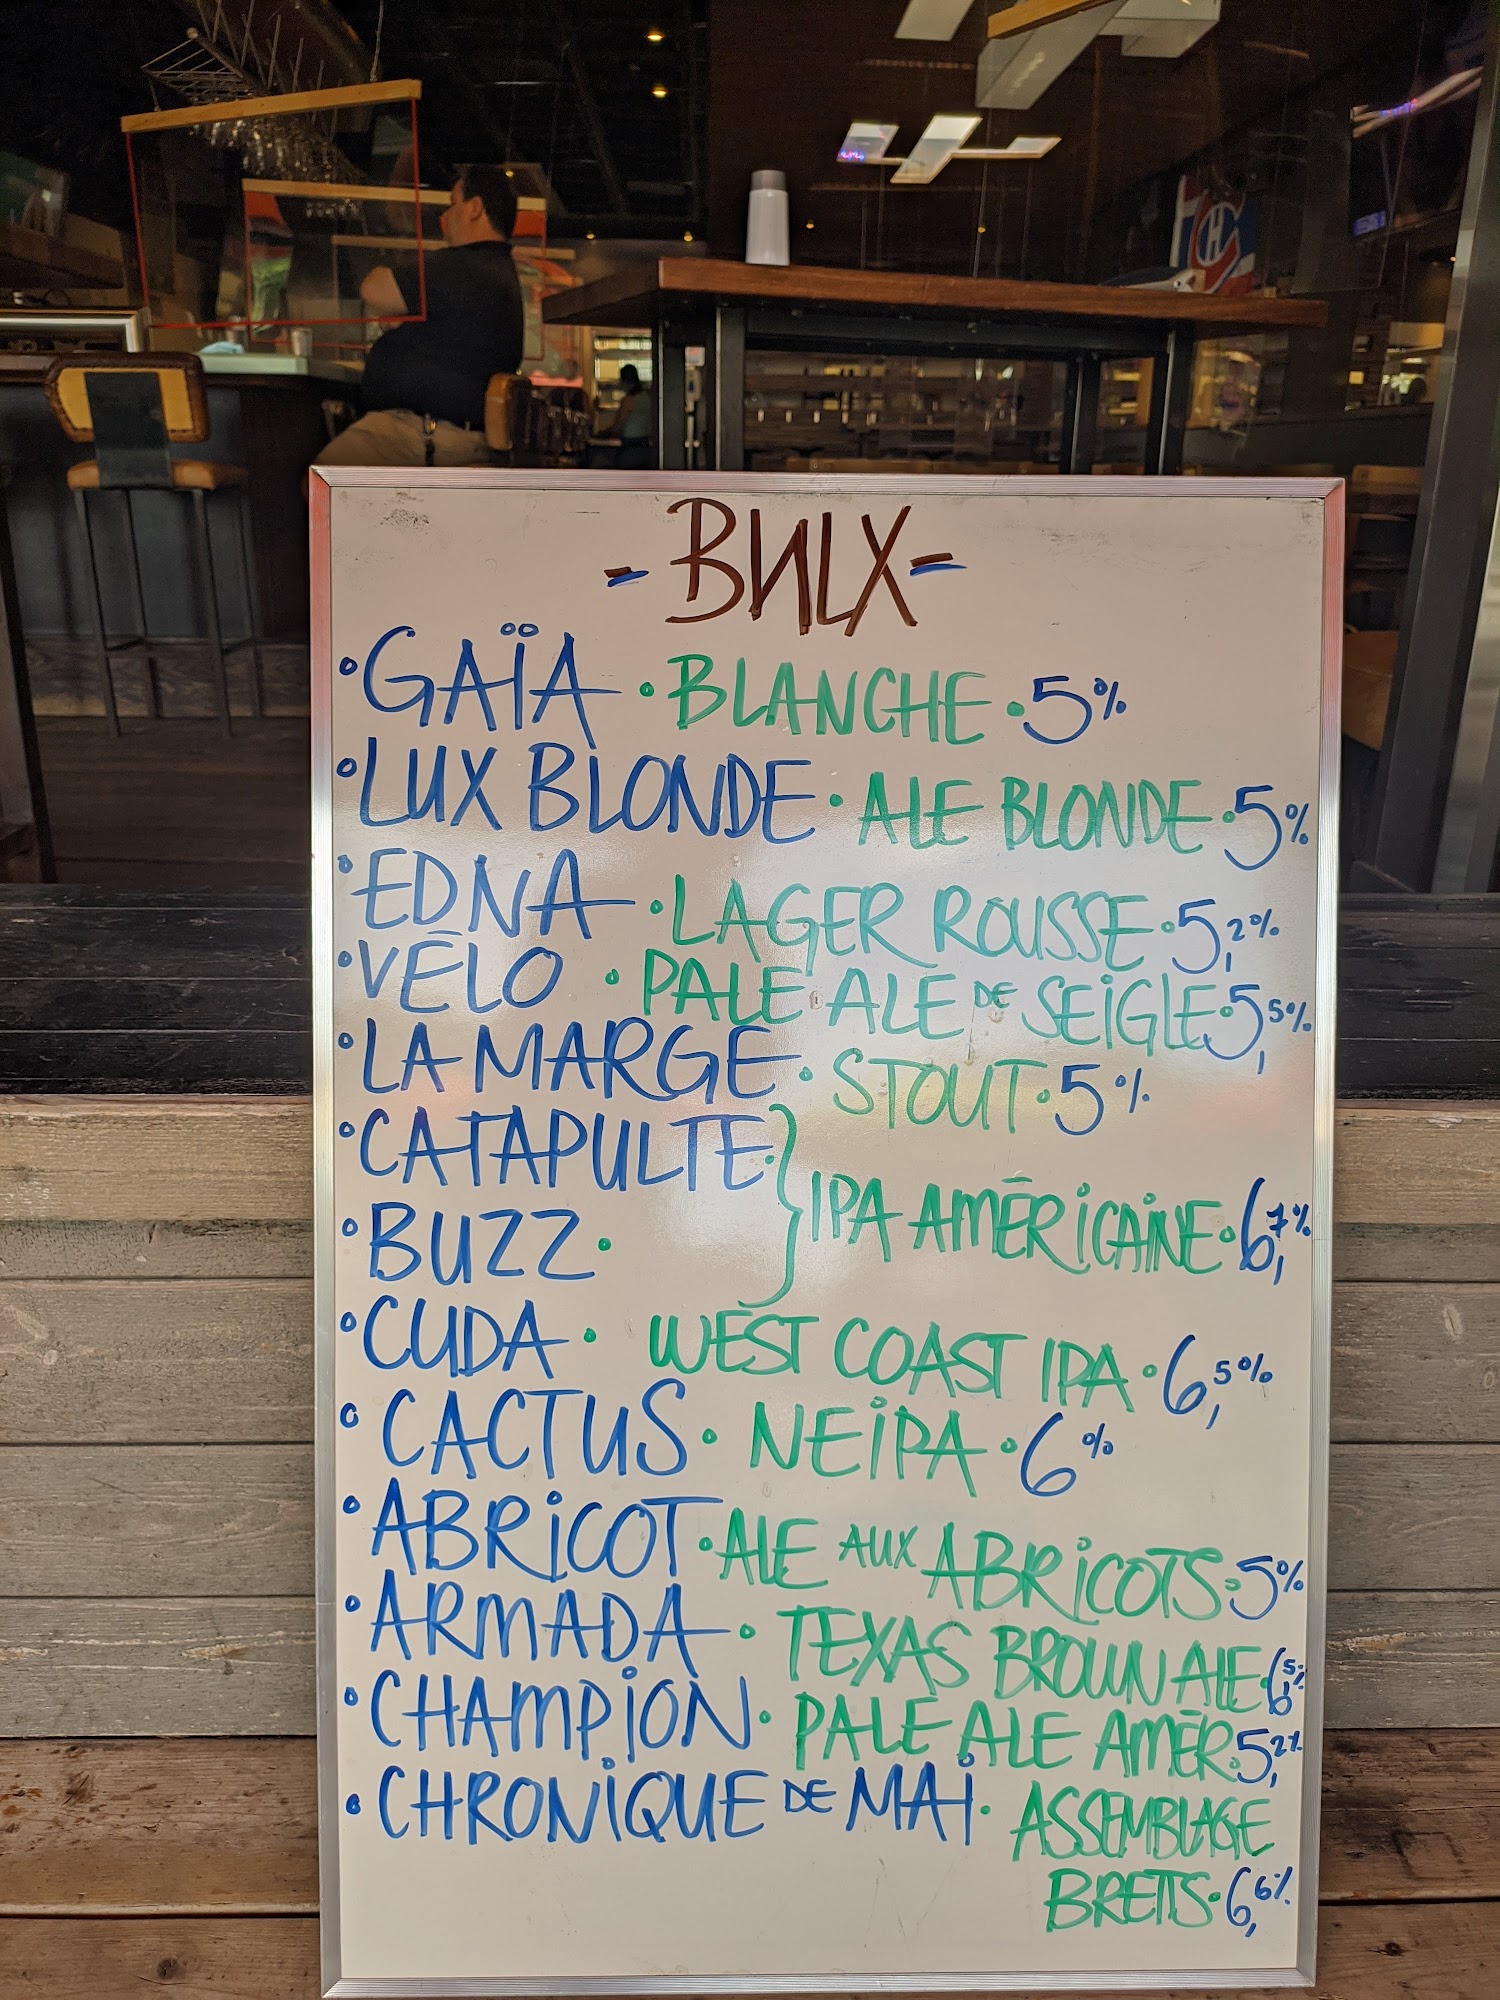 - BNLX -
• GAÏA • BLANCHE • 5%
• LUX BLONDE • ALE BLONDE • 5%
• EDNA • LAGER ROUSSE • 5,2%
• VÉLO • PALE ALE DE SEIGLE • 5,5%
• LA MARGE • STOUT • 5%
• CATAPULTE •
• BUZZ • } IPA AMÉRICAINE • 6,7%
• CUDA • WEST COAST IPA • 6,5%
• CACTUS • NEIPA • 6%
• ABRICOT • ALE AUX ABRICOTS • 5%
• ARMADA • TEXAS BROWN ALE • 6,5%
• CHAMPION • PALE ALE AMÉR. 5,2%
• CHRONIQUE DE MAI • ASSEMBLAGE
BRETTS • 6,6%